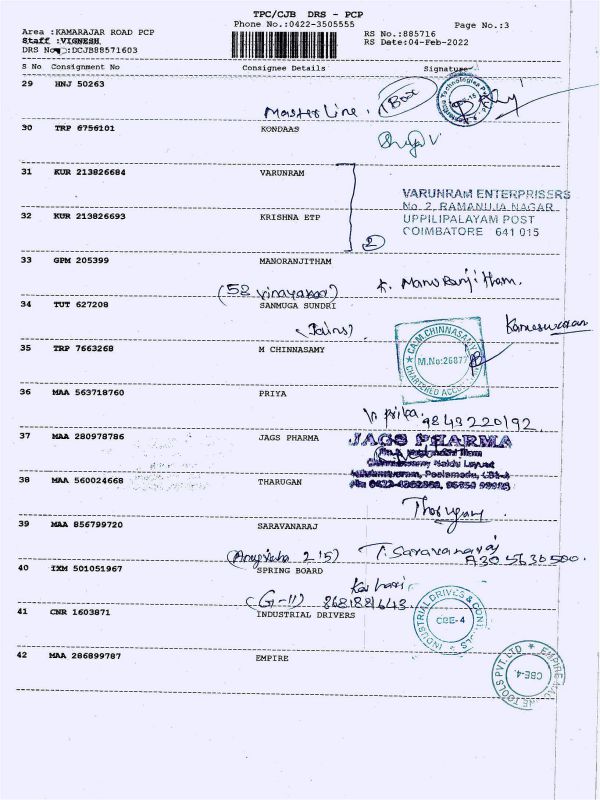 TPC/CJB DRS - PCP
Phone No.:0422-3505555
Page No.:3
Area :KAMARAJAR ROAD PCP
Staff :VIGNESH
DRS No :DCJB88571603
RS No.:885716
RS Date:04-Feb-2022
S No Consignment No Consignee Details Signature
29 HNJ 50263
Masterline
30 TRP 6756101 KONDAAS
31 KUR 213826684 VARUNRAM
VARUNRAM ENTERPRISERS
No. 2, RAMANUJA NAGAR
UPPILIPALAYAM POST
COIMBATORE 641 015
32 KUR 213826693 KRISHNA ETP
2
33 GPM 205399 MANORANJITHAM
(52 vinayagar) K. Manoranjitham.
34 TUT 627208 SANMUGA SUNDRI
(Jains) Kameswaran
35 TRP 7663268 M CHINNASAMY
CA.M.CHINNASAMY
M.No:26877
CHARTERED
36 MAA 563718760 PRIYA
9843220192
37 MAA 280978786 JAGS PHARMA
JAGS PHARMA
38 MAA 560024668 THARUGAN
Tharugan.
39 MAA 856799720 SARAVANARAJ
T. Saravanaraj
40 IXM 501051967 SPRING BOARD
(G-11)
41 CNR 1603871 INDUSTRIAL DRIVERS
INDUSTRIAL DRIVES &
CBE-4
42 MAA 286899787 EMPIRE
TOOLS PVT. LTD
CBE-4.